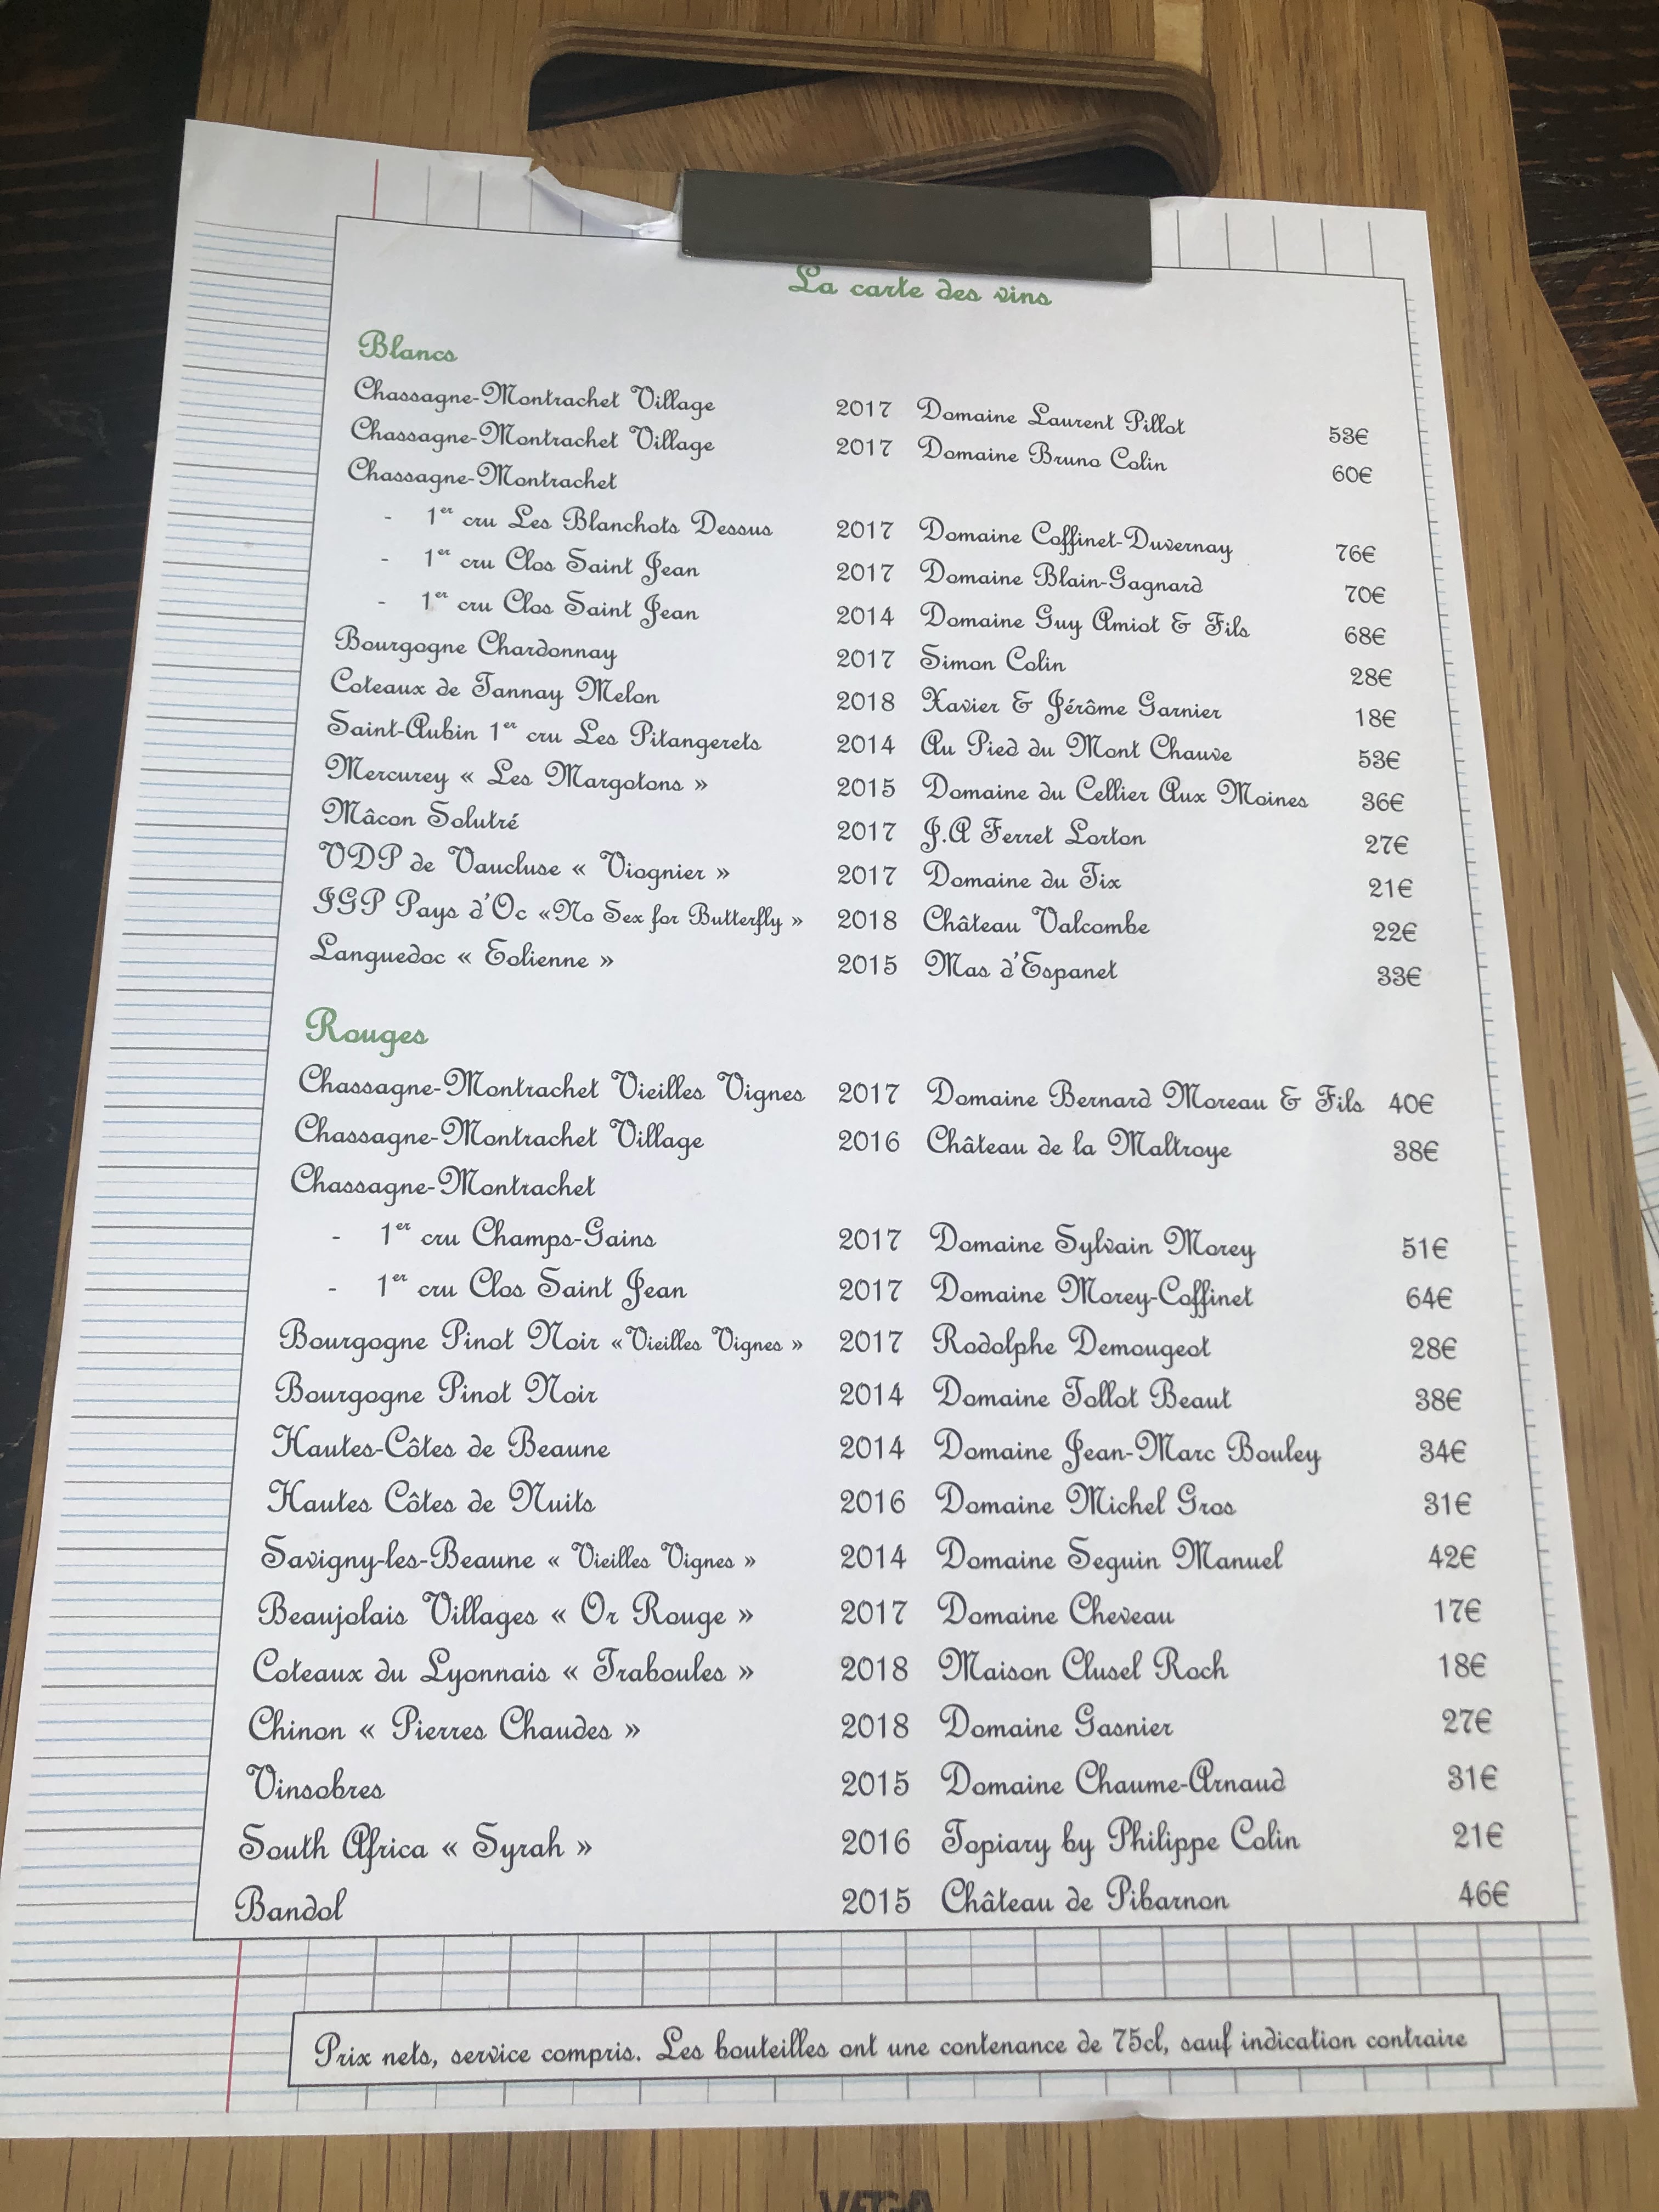 La carte des vins
Blancs
Chassagne-Montrachet Village 2017 Domaine Laurent Pillot 53€
Chassagne-Montrachet Village 2017 Domaine Bruno Colin 60€
Chassagne-Montrachet
- 1er cru Les Blanchots Dessus 2017 Domaine Coffinet-Duvernay 76€
- 1er cru Clos Saint Jean 2017 Domaine Blain-Gagnard 70€
- 1er cru Clos Saint Jean 2014 Domaine Guy Amiot & Fils 68€
Bourgogne Chardonnay 2017 Simon Colin 28€
Coteaux de Tannay Melon 2018 Xavier & Jérôme Garnier 18€
Saint-Aubin 1er cru Les Pitangerets 2014 Au Pied du Mont Chauve 53€
Mercurey « Les Margotons » 2015 Domaine du Cellier Aux Moines 36€
Mâcon Solutré 2017 J.A Ferret Lorton 27€
VDP de Vaucluse « Viognier » 2017 Domaine du Tix 21€
IGP Pays d'Oc «No Sex for Butterfly » 2018 Château Valcombe 22€
Languedoc « Eolienne » 2015 Mas d'Espanet 33€
Rouges
Chassagne-Montrachet Vieilles Vignes 2017 Domaine Bernard Moreau & Fils 40€
Chassagne-Montrachet Village 2016 Château de la Maltroye 38€
Chassagne-Montrachet
- 1er cru Champs-Gains 2017 Domaine Sylvain Morey 51€
- 1er cru Clos Saint Jean 2017 Domaine Morey-Coffinet 64€
Bourgogne Pinot Noir «Vieilles Vignes » 2017 Rodolphe Demougeot 28€
Bourgogne Pinot Noir 2014 Domaine Tollot Beaut 38€
Hautes-Côtes de Beaune 2014 Domaine Jean-Marc Bouley 34€
Hautes Côtes de Nuits 2016 Domaine Michel Gros 31€
Savigny-les-Beaune « Vieilles Vignes » 2014 Domaine Seguin Manuel 42€
Beaujolais Villages « Or Rouge » 2017 Domaine Cheveau 17€
Coteaux du Lyonnais « Traboules » 2018 Maison Clusel Roch 18€
Chinon « Pierres Chaudes » 2018 Domaine Gasnier 27€
Vinsobres 2015 Domaine Chaume-Arnaud 31€
South Africa « Syrah » 2016 Topiary by Philippe Colin 21€
Bandol 2015 Château de Pibarnon 46€
Prix nets, service compris. Les bouteilles ont une contenance de 75cl, sauf indication contraire